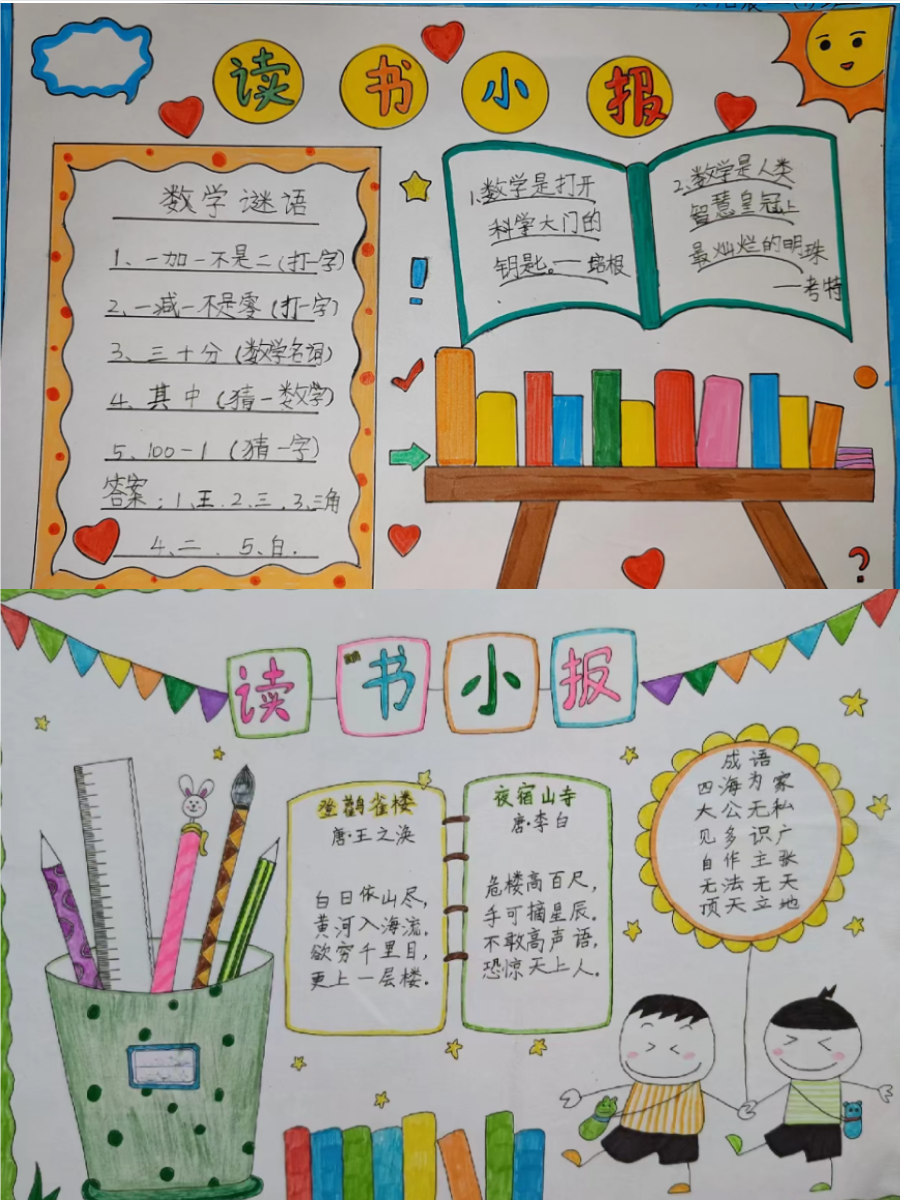 读书小报
数学谜语
1、一加一不是二(打一字)
2、一减一不是零(打一字)
3、三十分(数学名词)
4、其中(猜一数学)
5、100-1(猜一字)
答案:1、王.2、三.3、三角
4、二.5、白.
1、数学是打开
科学大门的
钥匙。——培根
2、数学是人类
智慧皇冠上
最灿烂的明珠
——考特
读书小报
登鹳雀楼
唐·王之涣
白日依山尽,
黄河入海流.
欲穷千里目,
更上一层楼.
夜宿山寺
唐·李白
危楼高百尺,
手可摘星辰.
不敢高声语,
恐惊天上人.
成语
四海为家
大公无私
见多识广
自作主张
无法无天
顶天立地